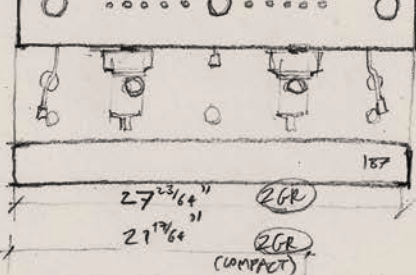 187
27 23/64" 2GR
21 17/64" 2GR
(COMPACT)